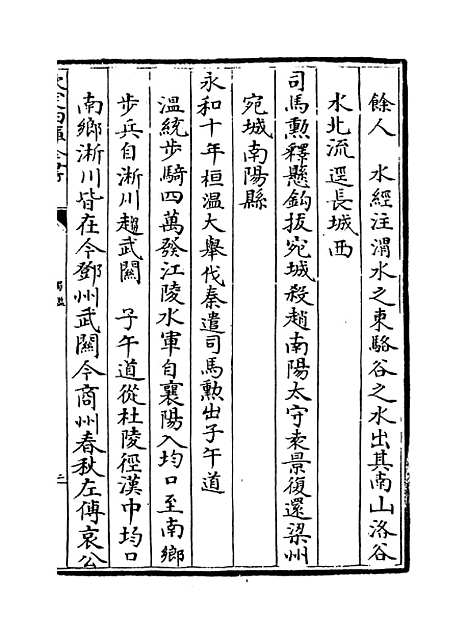 餘人　水經注渭水之東駱谷之水出其南山洛谷
水北流逕長城西
司馬勲釋懸鈎拔宛城殺趙南陽太守袁景復還梁州
宛城南陽縣
永和十年桓溫大舉伐秦遣司馬勲出子午道
溫統步騎四萬發江陵水軍自襄陽入均口至南鄉
步兵自淅川趨武關　子午道從杜陵徑漢中均口
南鄉淅川皆在今鄧州武關今商州春秋左傳哀公
蜀鑑